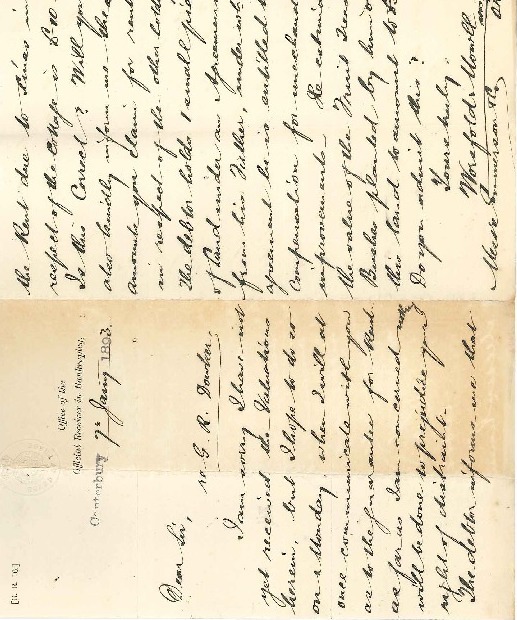 [B. R. 76]
Office of the
Official Receiver in Bankruptcy,
Canterbury 7th Jany 1893.
Dear Sir,
re G. R. Dowker.
I am sorry I have not
yet received the Valuations
herein, but I hope to do so
on Monday when I will at
once communicate with you
as to the guarantee for Rent
as far as I am concerned nothing
will be done to prejudice your
right of distraint.
The debtor informs me that
the Rent due to
respect of the cottage is £
Is this Correct? Will you
also kindly inform me the
amount you claim for rent
in respect of the other
The debtor holds 1 small
of land under an Agreement
from his Father, under
agreement he is entitled to
Compensation for unexhausted
improvements. He
the value of the Fruit Trees
Bushes planted by him
this land to amount to
Do you admit this?
Yours truly
Worsfold Mowll
Messrs Emmerson & Co